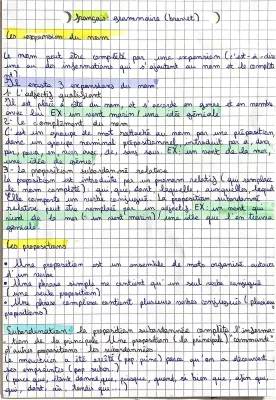 ) français: grammaire (brevet) )
Les expansions du nom
Le nom peut être complété par une expansion (c'est-à-dire
une ou des informations qui s'ajoutent au nom et le complè
tent)
Il existe 3 expansions du nom
1- L'adjectif qualificatif
Il est placé à côté du nom, et s'accorde en genre et en nombre
avec lui EX: un vent marin / une idée géniale
2- Le complément du nom
C'est un groupe de mot rattaché au nom par une préposition
dans un groupe nominal prépositionnel introduit par à, dans,
par, pour, en, avec, de, sans, sous EX: un vent de la mer,
une idée de génie.
3- La proposition subordonnée relative
La proposition est introduite par un pronom relatif (qui remplace
le nom complété): qui, que, dont, laquelle, auxquelles, lequel
Elle comporte un verbe conjugué. La proposition subordonnée
relative peut être remplacée par un adjectif EX: un vent qui
vient de la mer (un vent marin) / une idée que l'on trouve
géniale
Les propositions
• Une proposition est un ensemble de mots organisé autour
d'un verbe
• Une phrase simple ne contient qu'un seul verbe conjugué
(une seule proposition)
• Une phrase complexe contient plusieurs verbes conjugués (plusieurs
propositions)
Subordination: la proposition subordonnée complète l'informa-
tion de la principale. Une proposition (la principale) "commande"
d'autres propositions: les subordonnées
la a été (pop princ) parce qu'on a découvert
ses empreintes (pop subor.)
(parce que, étant donné que, puisque, quand, si bien que, afin que,
que, dont, où, tandis que